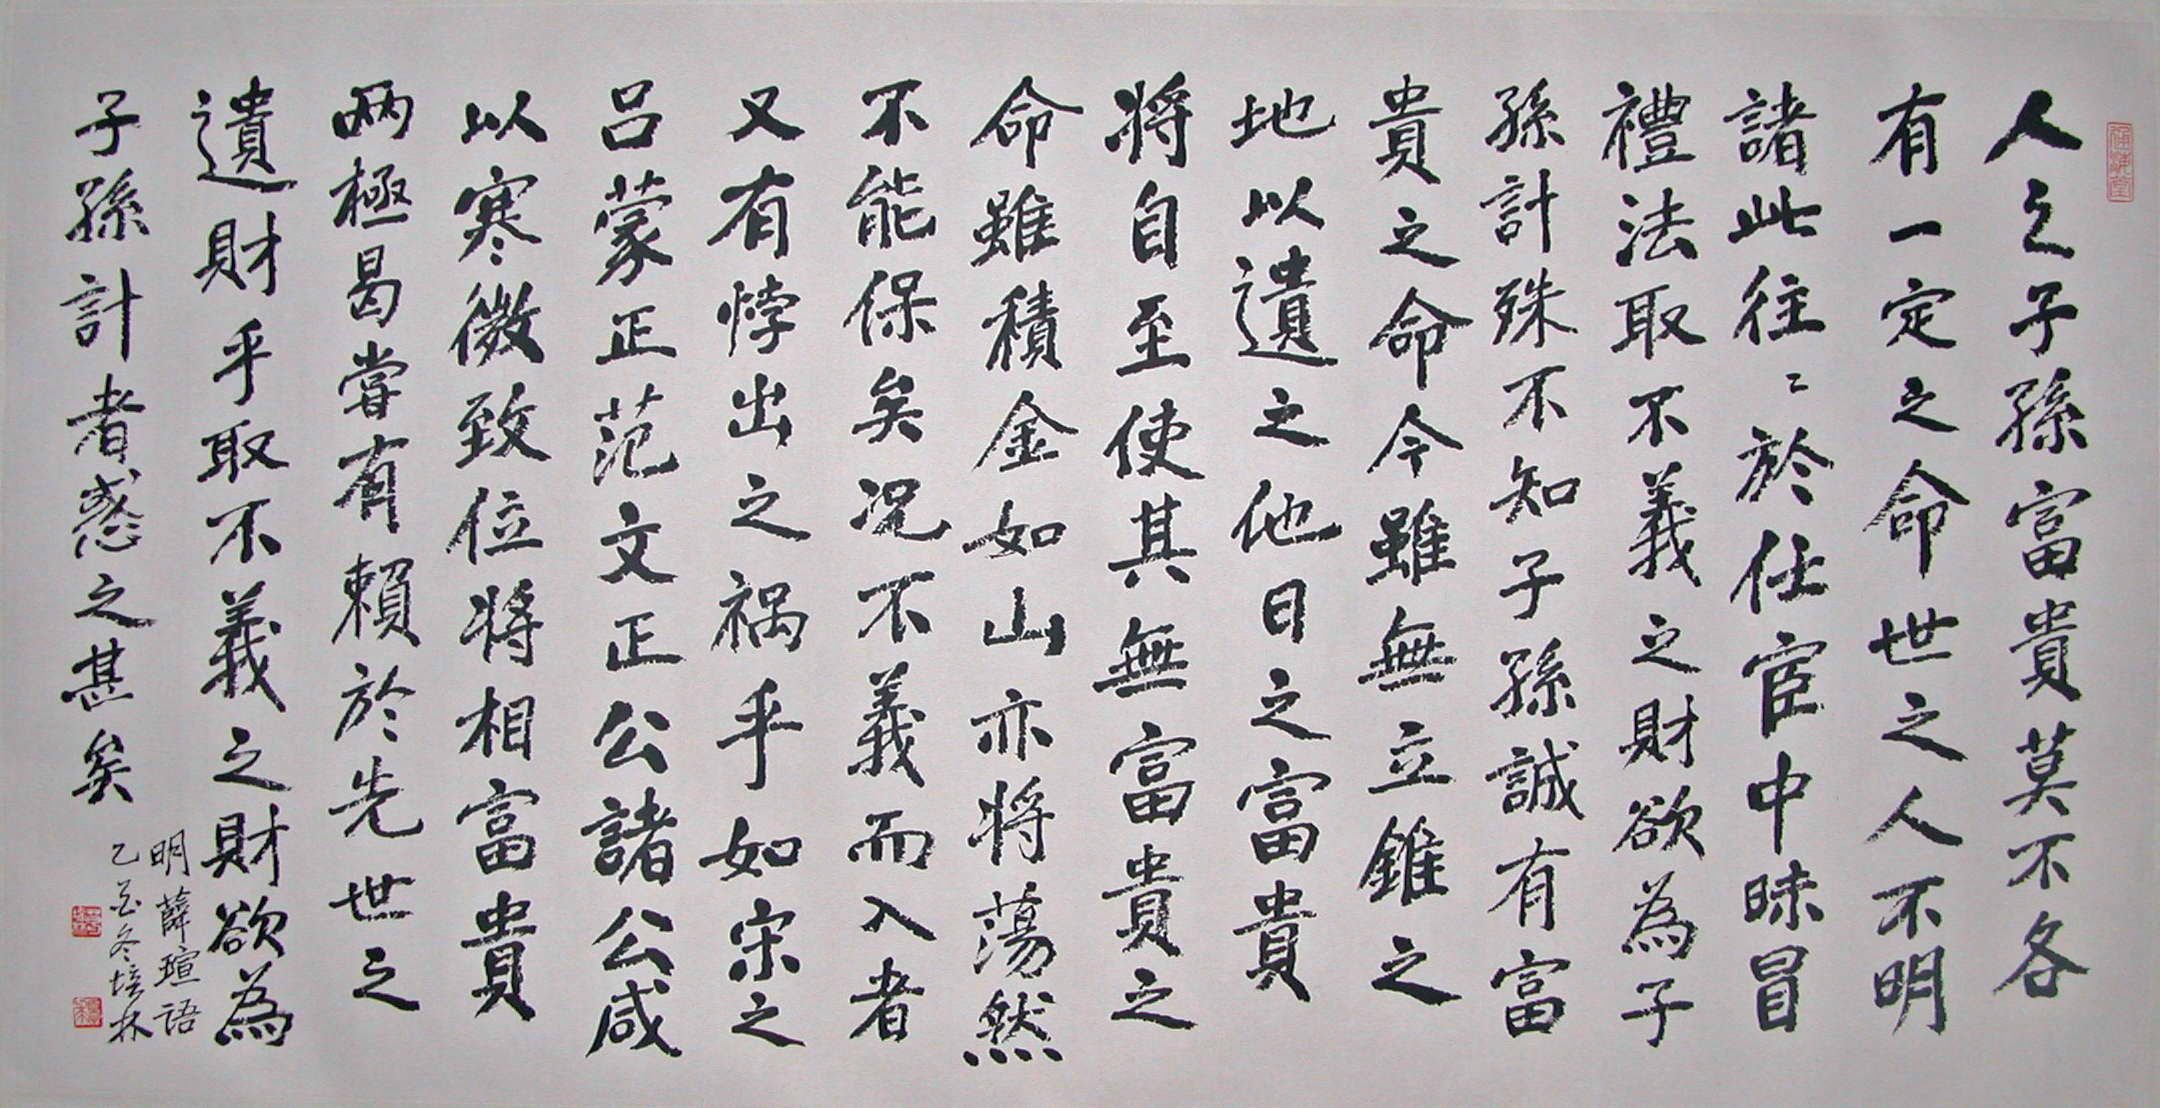 人之子孫富貴莫不各
有一定之命世之人不明
諸此往〻於仕宦中昧冒
禮法取不義之財欲為子
孫計殊不知子孫誠有富
貴之命今雖無立錐之
地以遺之他日之富貴
将自至使其無富貴之
命雖積金如山亦将蕩然
不能保矣况不義而入者
又有悖出之禍乎如宋之
呂蒙正范文正公諸公咸
以寒微致位将相富貴
兩極曷嘗有賴於先世之
遺財乎取不義之財欲為
子孫計者惑之甚矣
明薛瑄语
乙酉冬培林